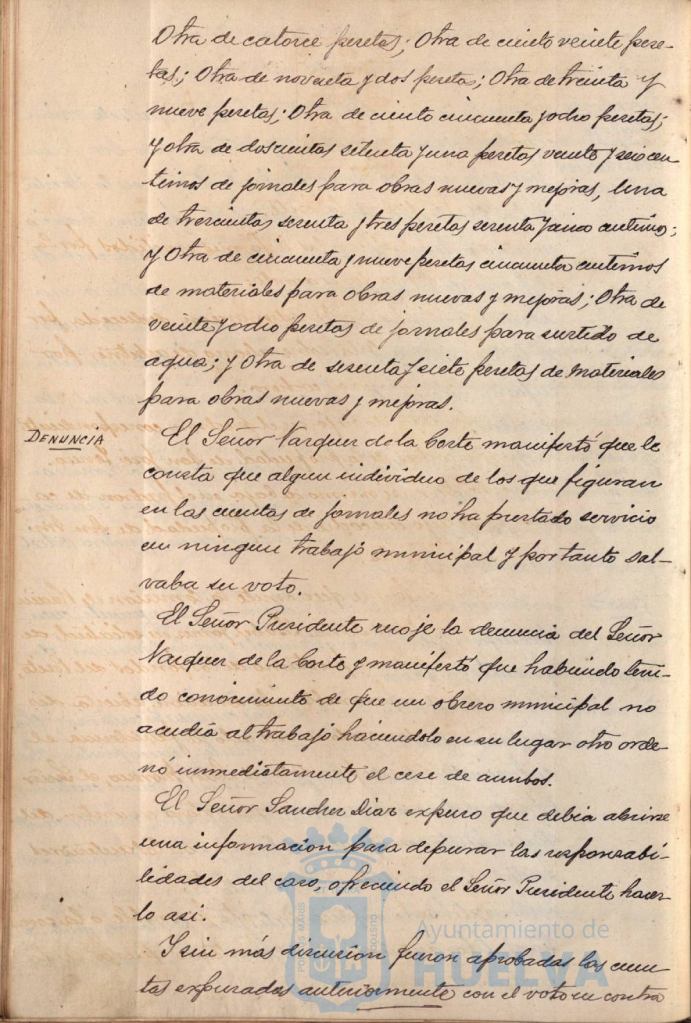 Otra de catorce pesetas; Otra de ciento veinte pese-
tas; Otra de noventa y dos pesetas; Otra de treinta y
nueve pesetas; Otra de ciento cincuenta y ocho pesetas;
y otra de doscientas setenta y una pesetas veinte y seis cen-
timos de jornales para obras nuevas y mejoras, Una
de trescientas sesenta y tres pesetas sesenta y cinco centimos;
y Otra de cincuenta y nueve pesetas cincuenta centimos
de materiales para obras nuevas y mejoras; Otra de
veinte y ocho pesetas de jornales para surtido de
agua; y Otra de sesenta y siete pesetas de materiales
para obras nuevas y mejoras.
DENUNCIA
El Señor Vazquez de la Corte manifestó que le
consta que algun individuo de los que figuran
en las cuentas de jornales no ha prestado servicio
en ningun trabajo municipal y por tanto sal-
vaba su voto.
El Señor Presidente recoje la denuncia del Señor
Vazquez de la Corte y manifestó que habiendo teni-
do conocimiento de que un obrero municipal no
acudia al trabajo haciendolo en su lugar otro orde-
nó inmediatamente el cese de ambos.
El Señor Sanchez Diaz expuso que debia abrirse
una informacion para depurar las responsabi-
lidades del caso, ofreciendo el Señor Presidente hacer-
lo asi.
Y sin más discusion fueron aprobadas las cuen-
tas expresadas anteriormente con el voto en contra
Ayuntamiento de
HUELVA